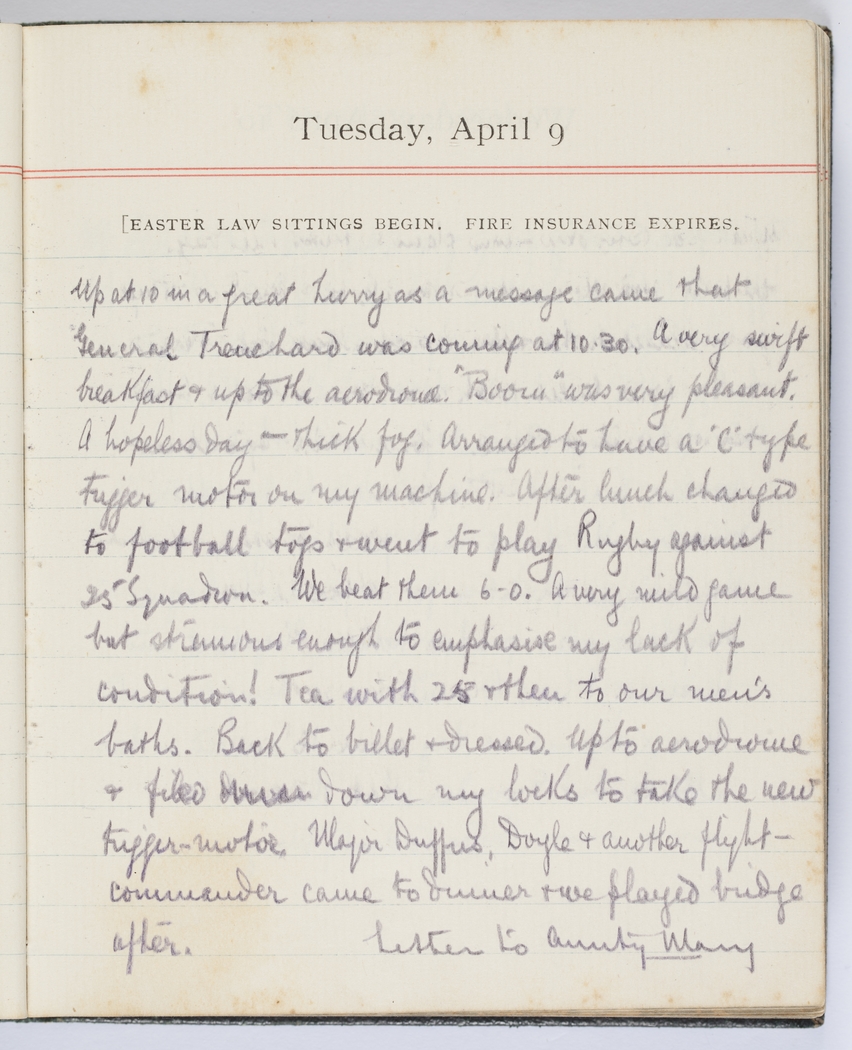 Tuesday, April 9
[EASTER LAW SITTINGS BEGIN. FIRE INSURANCE EXPIRES.
Up at 10 in a great hurry as a message came that
General Trenchard was coming at 10.30. A very swift
breakfast & up to the aerodrome. "Boom" was very pleasant.
A hopeless day – thick fog. Arranged to have a 'C' type
trigger motor on my machine. After lunch changed
to football togs & went to play Rugby against
25 Squadron. We beat them 6-0. A very mild game
but strenuous enough to emphasise my lack of
condition! Tea with 25 & then to our men's
baths. Back to billet & dressed. Up to aerodrome
& filed down my locks to take the new
trigger-motor. Major Duffus, Doyle & another flight-
commander came to dinner & we played bridge
after. Letter to Aunty Mary